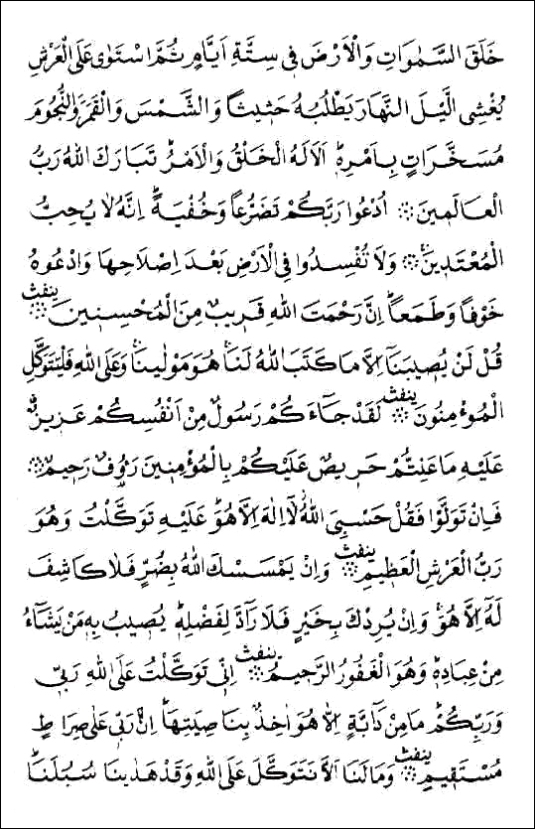 خَلَقَ السَّمٰوَاتِ وَالْاَرْضَ فِي سِتَّةِ اَيَّامٍ ثُمَّ اسْتَوٰى عَلَى الْعَرْشِ
يُغْشِي الَّيْلَ النَّهَارَ يَطْلُبُهُ حَثِيثًا وَالشَّمْسَ وَالْقَمَرَ وَالنُّجُومَ
مُسَخَّرَاتٍ بِاَمْرِهِ ۜ اَلَا لَهُ الْخَلْقُ وَالْاَمْرُ ۜ تَبَارَكَ اللهُ رَبُّ
الْعَالَمِينَ ۞ اُدْعُوا رَبَّكُمْ تَضَرُّعًا وَخُفْيَةً ۜ اِنَّهُ لَا يُحِبُّ
الْمُعْتَدِينَ ۞ وَلَا تُفْسِدُوا فِي الْاَرْضِ بَعْدَ اِصْلَاحِهَا وَادْعُوهُ
خَوْفًا وَطَمَعًا ۜ اِنَّ رَحْمَتَ اللهِ قَرِيبٌ مِنَ الْمُحْسِنِينَ ۞ ينفث
قُلْ لَنْ يُصِيبَنَا اِلَّا مَا كَتَبَ اللهُ لَنَا هُوَ مَوْلٰينَا وَعَلَى اللهِ فَلْيَتَوَكَّلِ
الْمُؤْمِنُونَ ۞ ينفث لَقَدْ جَاءَكُمْ رَسُولٌ مِنْ اَنْفُسِكُمْ عَزِيزٌ
عَلَيْهِ مَا عَنِتُّمْ حَرِيصٌ عَلَيْكُمْ بِالْمُؤْمِنِينَ رَؤُفٌ رَحِيمٌ ۞
فَاِنْ تَوَلَّوْا فَقُلْ حَسْبِيَ اللهُ لَا اِلٰهَ اِلَّا هُوَ عَلَيْهِ تَوَكَّلْتُ وَهُوَ
رَبُّ الْعَرْشِ الْعَظِيمِ ۞ ينفث وَاِنْ يَمْسَسْكَ اللهُ بِضُرٍّ فَلَا كَاشِفَ
لَهُ اِلَّا هُوَ وَاِنْ يُرِدْكَ بِخَيْرٍ فَلَا رَادَّ لِفَضْلِهِ ۜ يُصِيبُ بِهِ مَنْ يَشَاءُ
مِنْ عِبَادِهِ ۜ وَهُوَ الْغَفُورُ الرَّحِيمُ ۞ ينفث اِنِّي تَوَكَّلْتُ عَلَى اللهِ رَبِّي
وَرَبِّكُمْ ۜ مَا مِنْ دَابَّةٍ اِلَّا هُوَ اٰخِذٌ بِنَاصِيَتِهَا ۜ اِنَّ رَبِّي عَلٰى صِرَاطٍ
مُسْتَقِيمٍ ۞ ينفث وَمَا لَنَا اَلَّا نَتَوَكَّلَ عَلَى اللهِ وَقَدْ هَدٰينَا سُبُلَنَا